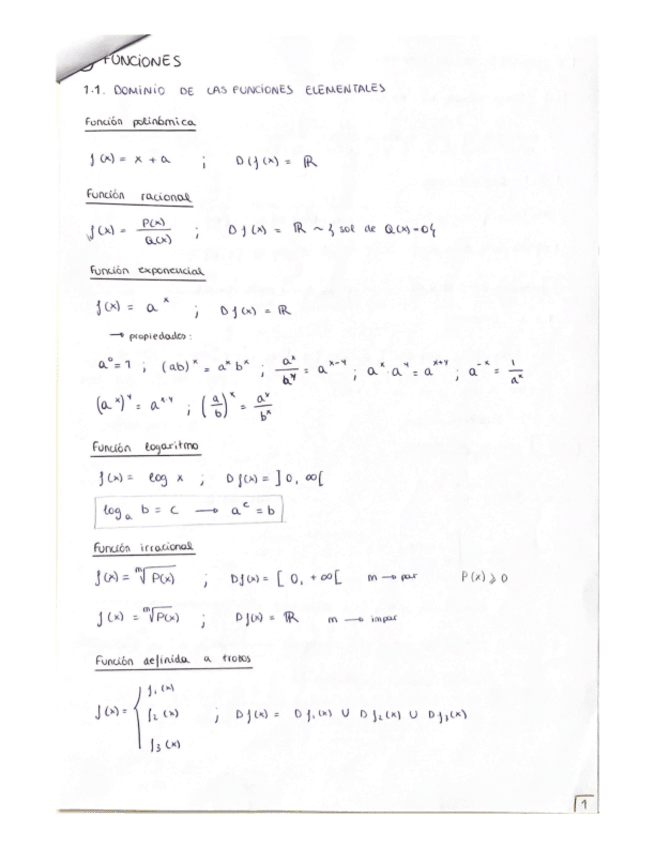 FUNCIONES
1.1. DOMINIO DE LAS FUNCIONES ELEMENTALES
Función polinómica
f(x) = x + a ; D(f(x) = ℝ
Función racional
f(x) = P(x)/Q(x) ; D f(x) = ℝ ~ { sol de Q(x)=0{
Función exponencial
f(x) = a^x ; D f(x) = ℝ
→ propiedades:
a^0 = 1 ; (ab)^x = a^x b^x ; a^x/b^y = a^(x-y) ; a^x · a^y = a^(x+y) ; a^-x = 1/a^x
(a^x)^y = a^(x·y) ; (a/b)^x = a^x/b^x
Función logaritmo
f(x) = log x ; D f(x) = ]0, ∞[
log_a b = c → a^c = b
Función irracional
f(x) = ᵐ√P(x) ; Df(x) = [0, +∞[ m → par P(x) ⩾ 0
f(x) = ᵐ√P(x) ; D f(x) = ℝ m → impar
Función definida a trozos
f(x) = { f₁(x)
f₂(x) ; D f(x) = D f₁(x) U D f₂(x) U D f₃(x)
f₃(x)
1